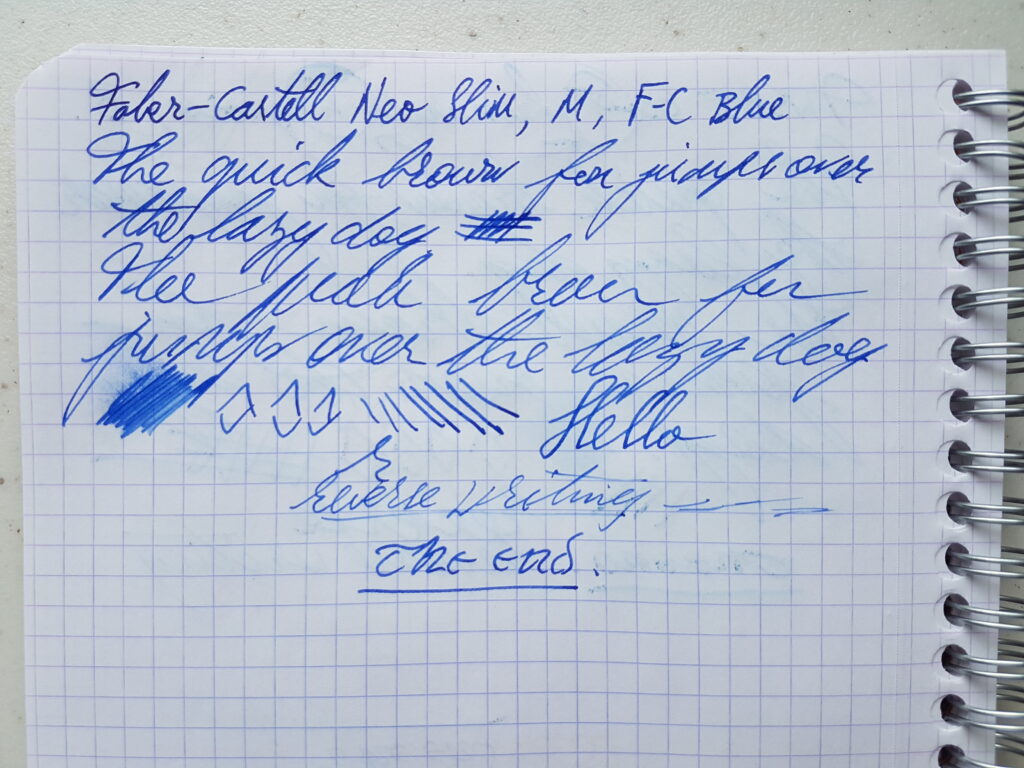 Faber-Castell Neo Slim, M, F-C Blue
The quick brown fox jumps over
the lazy dog
The quick brown fox
jumps over the lazy dog
Hello
reverse writing
The end.